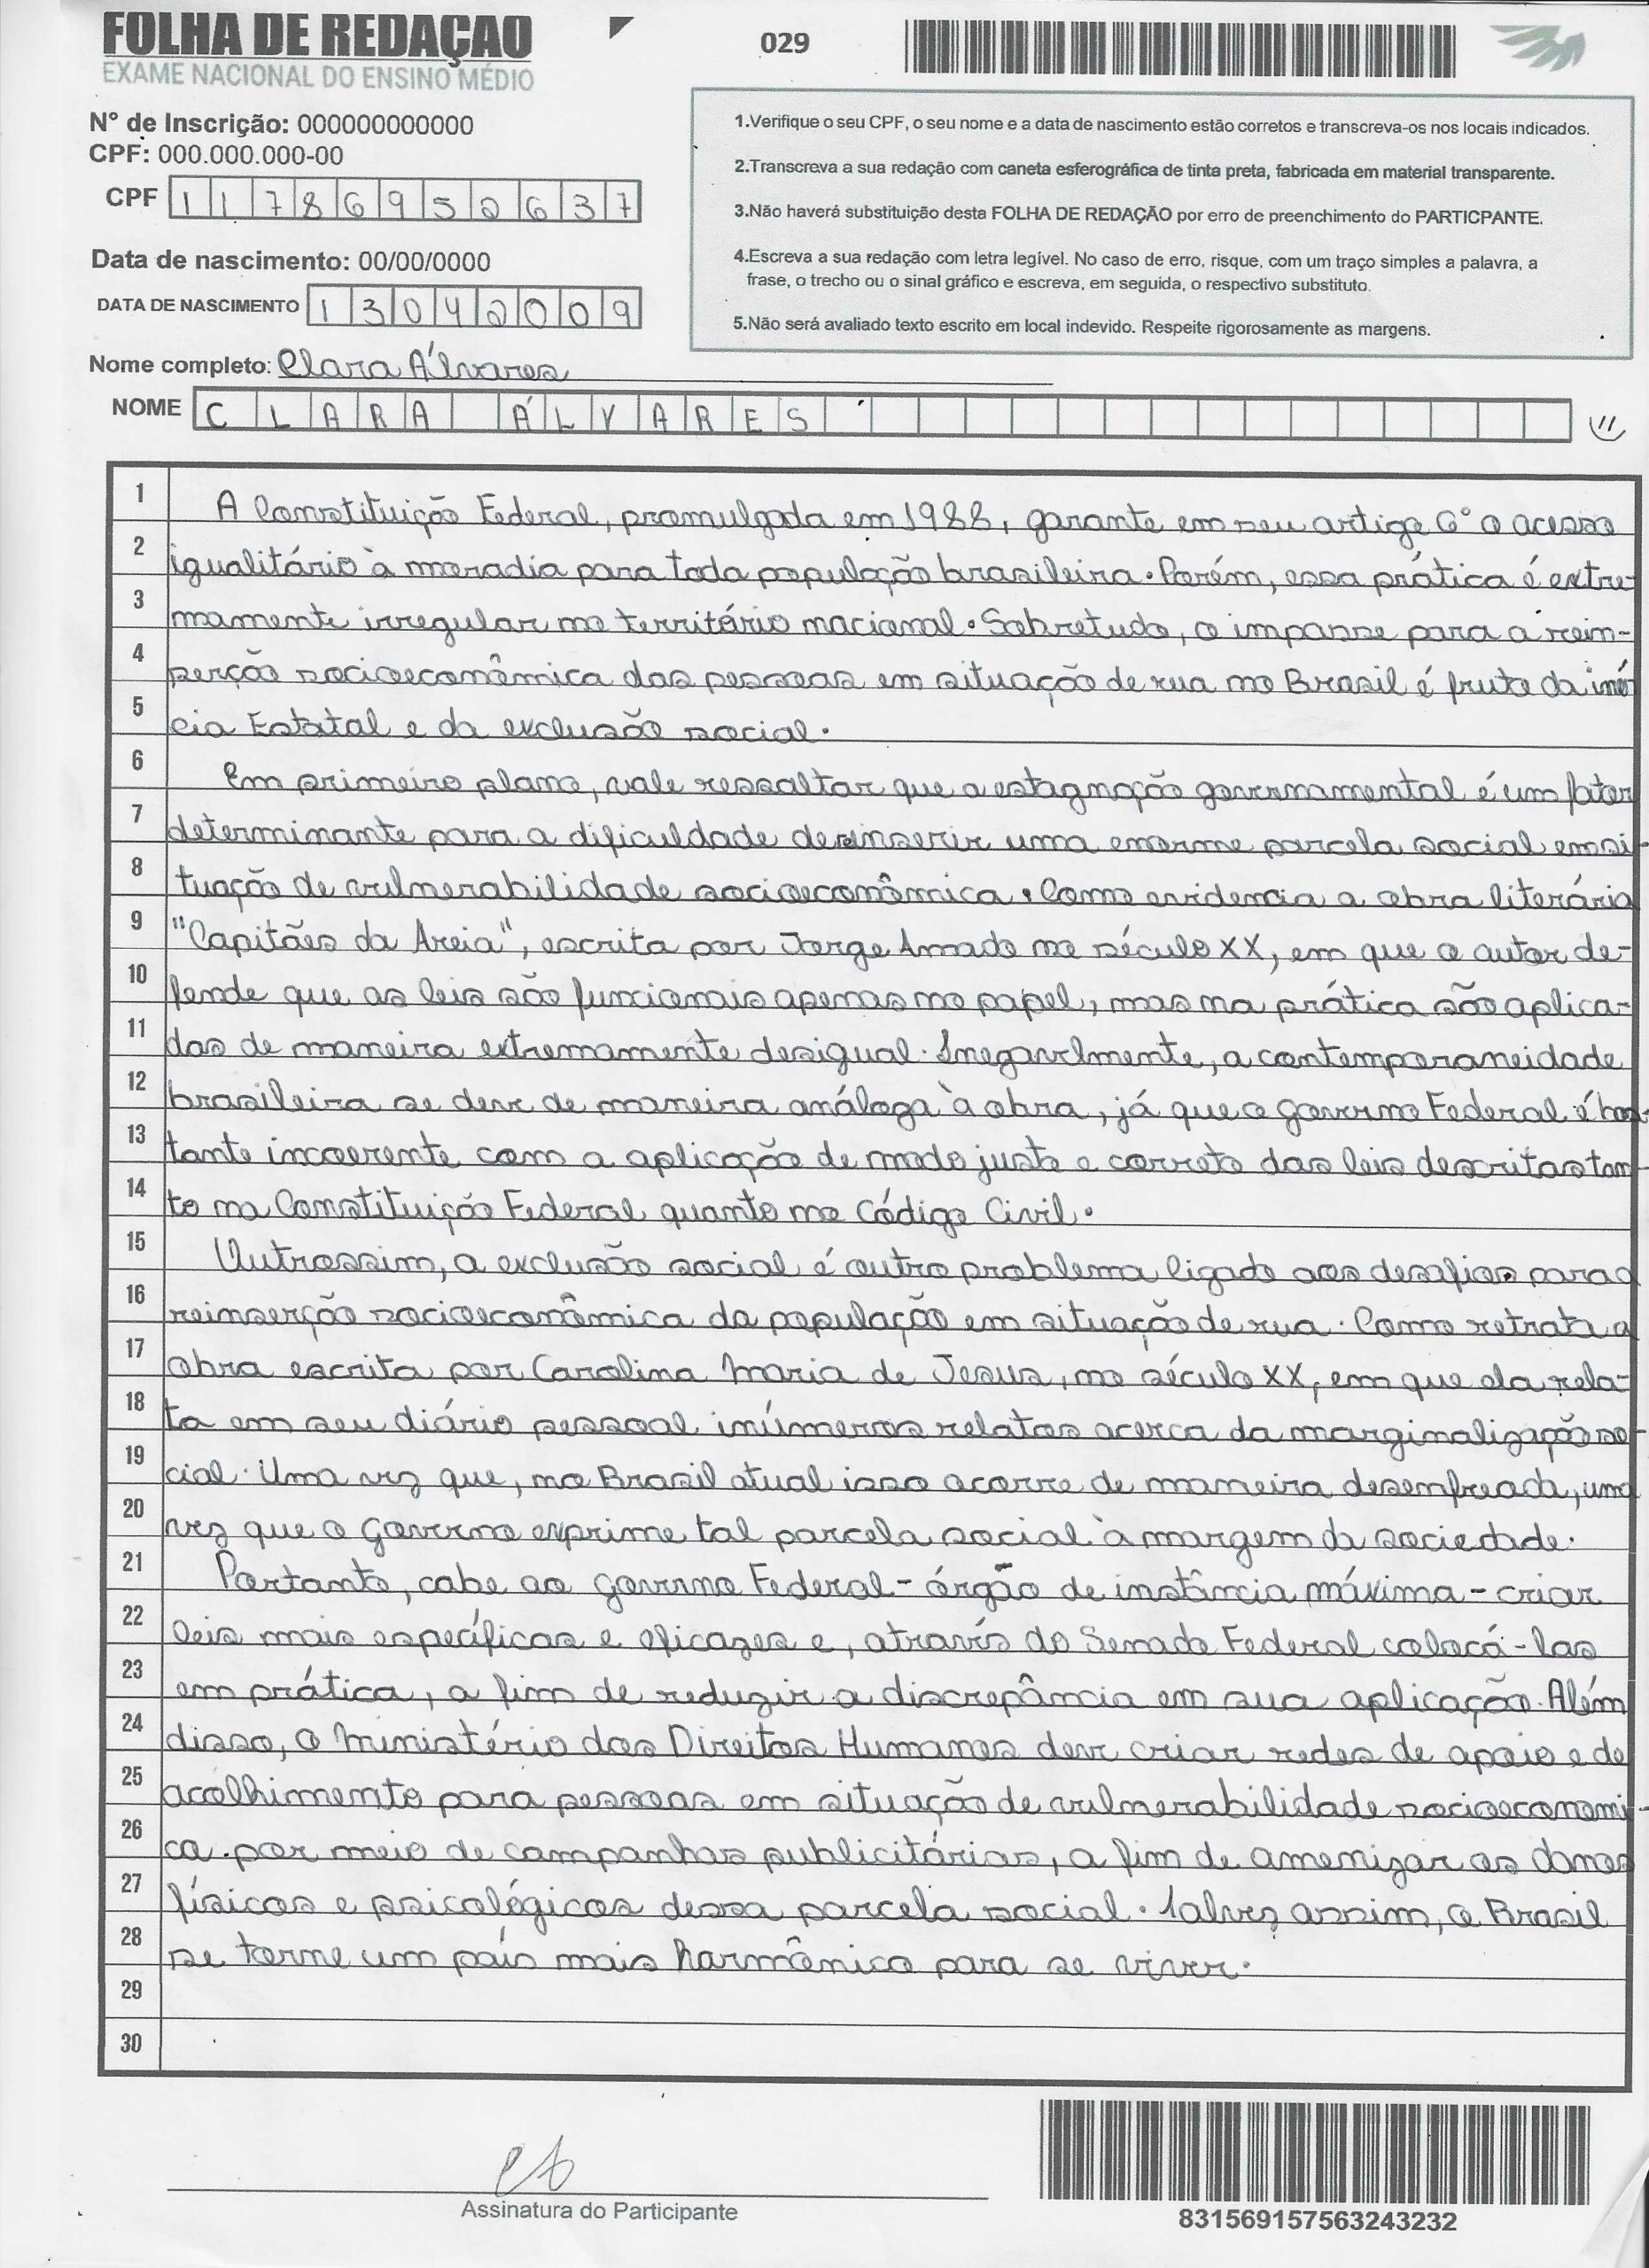 FOLHA DE REDAÇÃO
EXAME NACIONAL DO ENSINO MÉDIO
029
Nº de Inscrição: 000000000000
CPF: 000.000.000-00
CPF 11786952637
Data de nascimento: 00/00/0000
DATA DE NASCIMENTO 13042009
Nome completo: Clara Álvares
NOME CLARA ÁLVARES
1.Verifique o seu CPF, o seu nome e a data de nascimento estão corretos e transcreva-os nos locais indicados.
2.Transcreva a sua redação com caneta esferográfica de tinta preta, fabricada em material transparente.
3.Não haverá substituição desta FOLHA DE REDAÇÃO por erro de preenchimento do PARTICPANTE.
4.Escreva a sua redação com letra legível. No caso de erro, risque, com um traço simples a palavra, a
frase, o trecho ou o sinal gráfico e escreva, em seguida, o respectivo substituto.
5.Não será avaliado texto escrito em local indevido. Respeite rigorosamente as margens.
1 A Constituição Federal, promulgada em 1988, garante em seu artigo 6º o acesso
2 igualitário à moradia para toda população brasileira. Porém, essa prática é extre-
3 mamente irregular no território nacional. Sobretudo, o impasse para a rein-
4 serção socioeconômica das pessoas em situação de rua no Brasil é fruto da inér
5 cia Estatal e da exclusão social.
6 Em primeiro plano, vale ressaltar que a estagnação governamental é um fator
7 determinante para a dificuldade de reinserir uma enorme parcela social em si-
8 tuação de vulnerabilidade socioeconômica. Como evidencia a obra literária
9 "Capitães da Areia", escrita por Jorge Amado no século XX, em que o autor de-
10 fende que as leis são funcionais apenas no papel, mas na prática são aplica-
11 das de maneira extremamente desigual. Inegavelmente, a contemporaneidade
12 brasileira se deve de maneira análoga à obra, já que o governo Federal é bas-
13 tante incoerente com a aplicação de modo justo e correto das leis descritas tan-
14 to na Constituição Federal quanto no Código Civil.
15 Outrossim, a exclusão social é outro problema ligado aos desafios para a
16 reinserção socioeconômica da população em situação de rua. Como retrata a
17 obra escrita por Carolina Maria de Jesus, no século XX, em que ela rela-
18 ta em seu diário pessoal inúmeros relatos acerca da marginalização so-
19 cial. Uma vez que, no Brasil atual isso ocorre de maneira desenfreada, uma
20 vez que o Governo exprime tal parcela social à margem da sociedade.
21 Portanto, cabe ao governo Federal - órgão de instância máxima - criar
22 leis mais específicas e eficazes e, através do Senado Federal colocá-las
23 em prática, a fim de reduzir a discrepância em sua aplicação. Além
24 disso, o Ministério dos Direitos Humanos deve criar redes de apoio e de
25 acolhimento para pessoas em situação de vulnerabilidade socioeconomi-
26 ca por meio de campanhas publicitárias, a fim de amenizar os danos
27 físicos e psicológicos dessa parcela social. Talvez assim, o Brasil
28 se torne um país mais harmônico para se viver.
29
30
Assinatura do Participante
831569157563243232